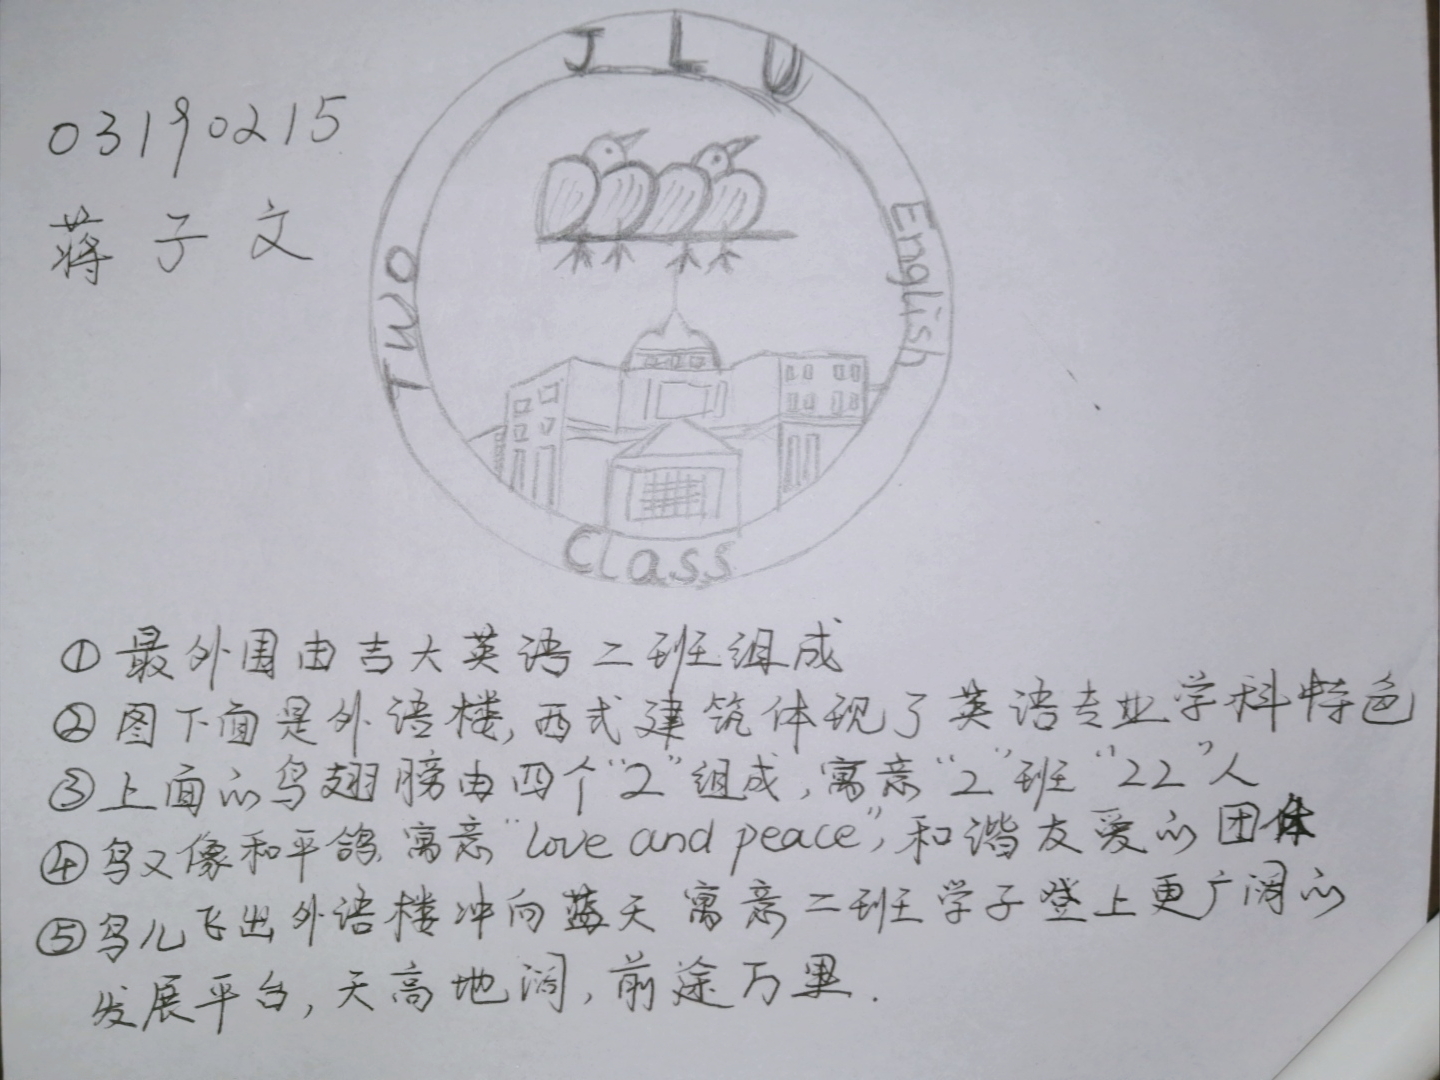 JLU
03190215
蒋子文
English
TWO
Class
①最外围由吉大英语二班组成
②图下面是外语楼,西式建筑体现了英语专业学科特色
③上面的鸟翅膀由四个“2”组成,寓意“2”班“22”人
④鸟又像和平鸽,寓意“love and peace”,和谐友爱的团体
⑤鸟儿飞出外语楼冲向蓝天寓意二班学子登上更广阔的
发展平台,天高地阔,前途万里.